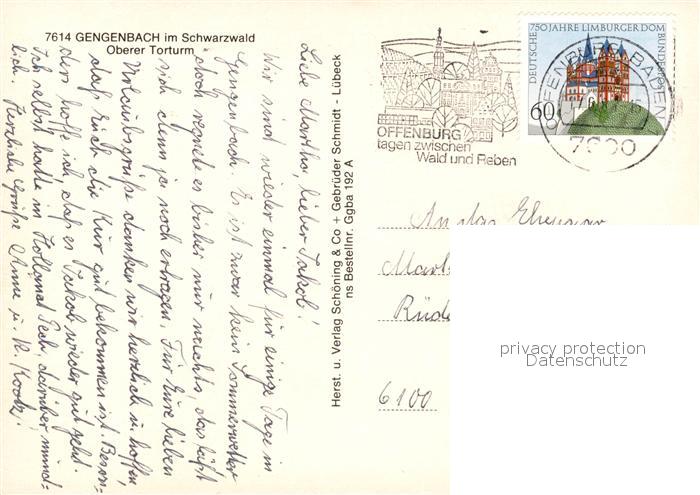 7614 GENGENBACH im Schwarzwald
Oberer Torturm
Liebe Martha, lieber Jakob!
Wir sind wieder einmal für einige Tage in
Gengenbach. Es ist zwar kein Sommerwetter
doch regnete es bisher nur nachts, das läßt
sich denn ja noch ertragen. Für Eure lieben
Urlaubsgrüße danken wir herzlich u. hoffen,
daß Euch die Kur gut bekommen ist. Beson-
ders hoffe ich, daß es Jakob wieder gut geht.
Ich selbst hatte in Holland Pech, darüber münd-
lich. Herzliche Grüße Anne u. K.
Herst. u. Verlag Schöning & Co + Gebrüder Schmidt - Lübeck
ns Bestellnr. Ggba 192 A
OFFENBURG
tagen zwischen
Wald und Reben
DEUTSCHE BUNDESPOST
750 JAHRE LIMBURGER DOM
60
OFFENBURG, BADEN
7600
An das Ehepaar
Mart
Rüde
6100
privacy protection
Datenschutz